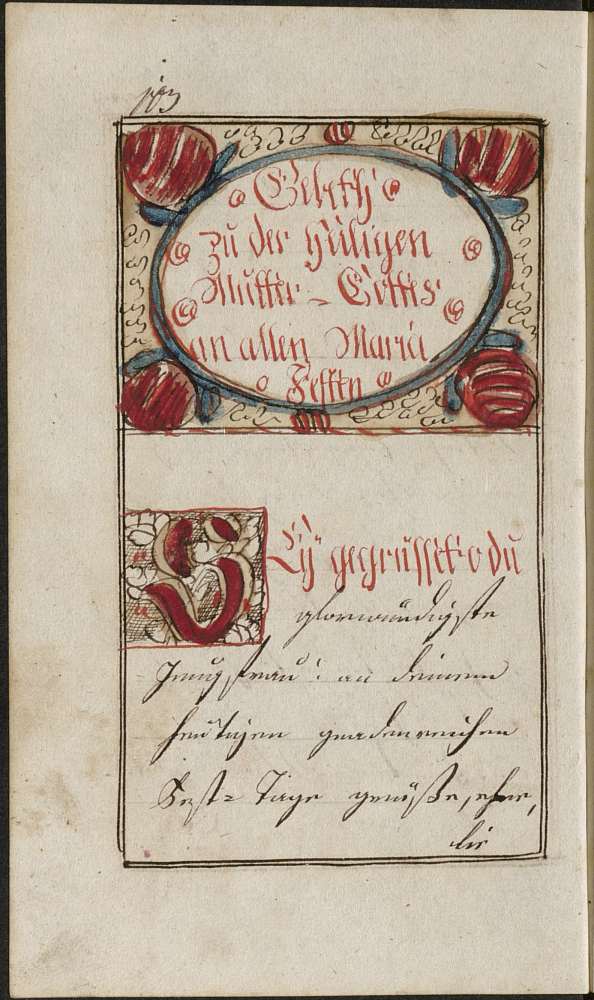 113
Gebeth
zu der Heiligen
Mutter = Gottes
an allen Maria
Festen
SEy gegrüsset o du
glorwürdigste
Jungfrau! an deinem
heutigen gnadenreichen
Fest = Tage